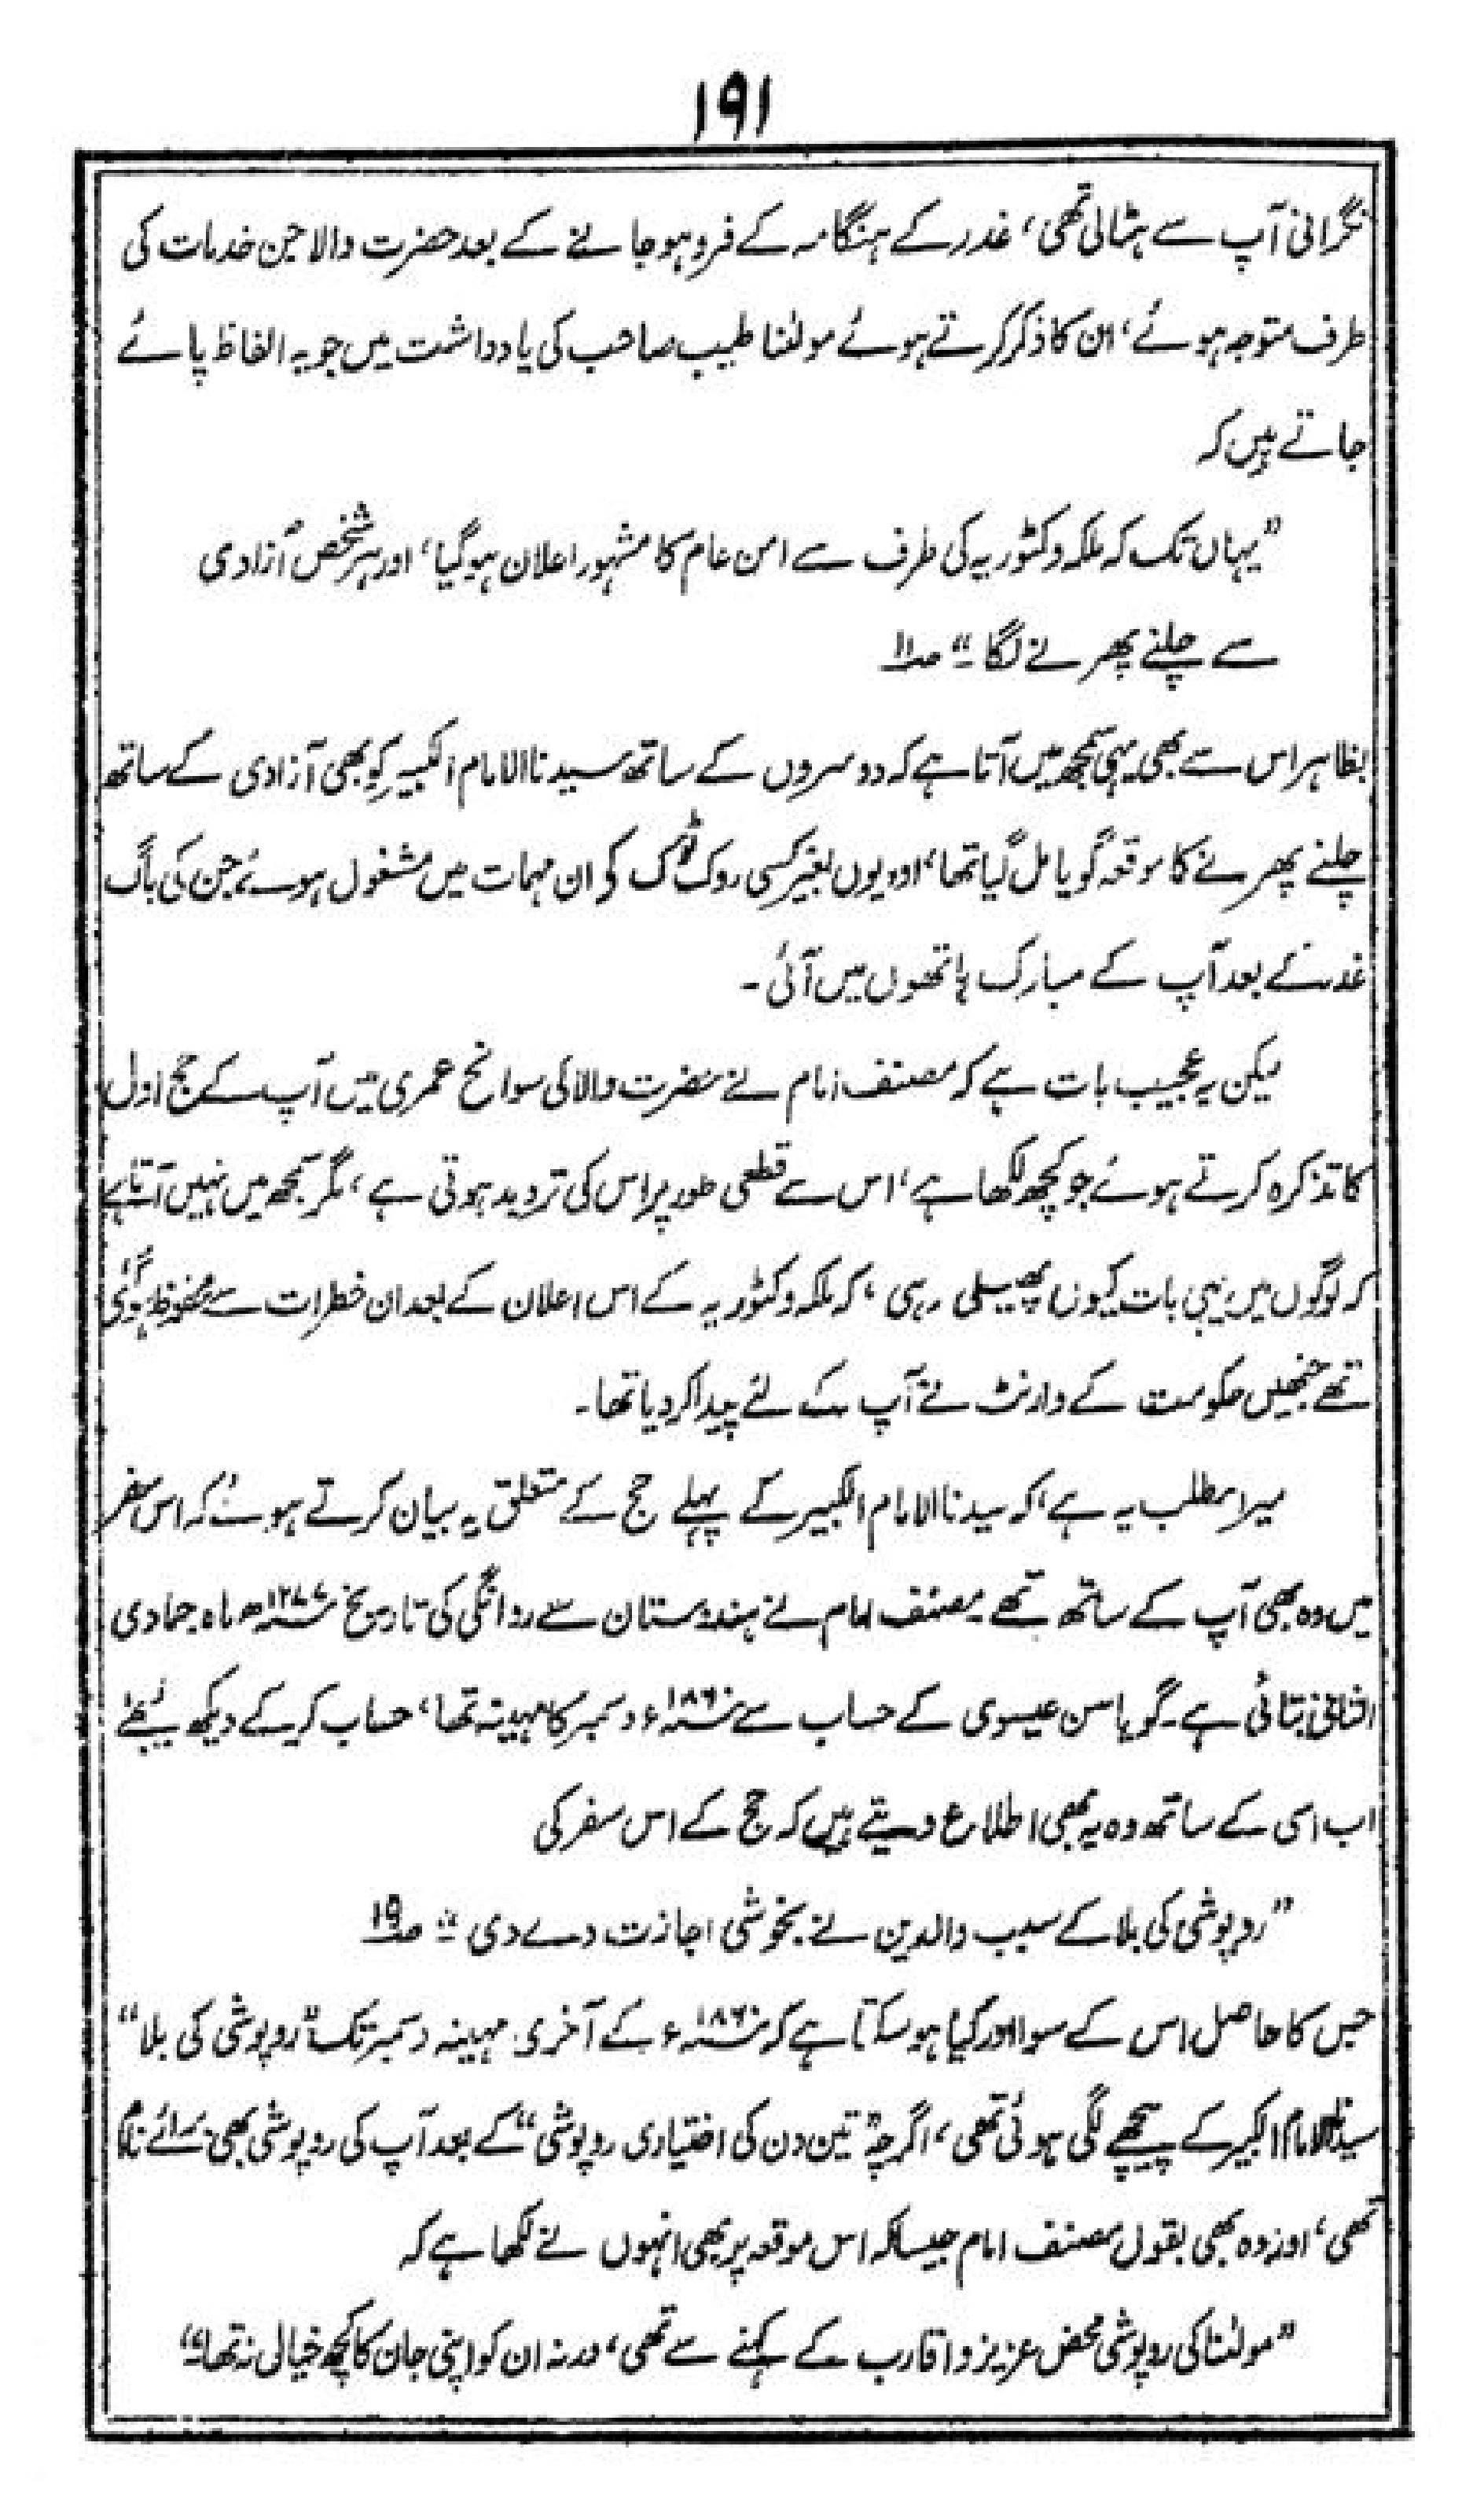 ۱۹۱
نگرانی آپ سے ہٹالی تھی، غدر کے ہنگامہ کے فرو ہو جانے کے بعد حضرت والا جن خدمات کی
طرف متوجہ ہوئے، ان کا ذکر کرتے ہوئے مولٰنا طیب صاحب کی یادداشت میں جو یہ الفاظ پائے
جاتے ہیں کہ
”یہاں تک کہ ملکہ وکٹوریہ کی طرف سے امن عام کا مشہور اعلان ہوگیا، اور ہر شخص آزادی
سے چلنے پھرنے لگا۔“ صلا
بظاہر اس سے بھی یہی سمجھ میں آتا ہے کہ دوسروں کے ساتھ سیدنا الامام الکبیر کو بھی آزادی کے ساتھ
چلنے پھرنے کا موقعہ گویا مل گیا تھا، اور یوں بغیر کسی روک ٹوک کو ان مہمات میں مشغول ہوئے، جن کی باگ
غدر کے بعد آپ کے مبارک ہاتھوں میں آئی۔
لیکن یہ عجیب بات ہے کہ مصنف امام نے حضرت والا کی سوانح عمری میں آپ کے حج اول
کا تذکرہ کرتے ہوئے جو کچھ لکھا ہے، اس سے قطعی طور پر اس کی تردید ہوتی ہے، مگر سمجھ میں نہیں آتا ہے
کہ لوگوں میں یہی بات کیوں پھیلی رہی، کہ ملکہ وکٹوریہ کے اس اعلان کے بعد ان خطرات سے محفوظ ہو گئے
تھے جنھیں حکومت کے وارنٹ نے آپ کے لئے پیدا کر دیا تھا۔
میرا مطلب یہ ہے، کہ سیدنا الامام الکبیر کے پہلے حج کے متعلق یہ بیان کرتے ہوئے کہ اس سفر
میں وہ بھی آپ کے ساتھ تھے۔ مصنف امام نے ہندوستان سے روانگی کی تاریخ ۱۲۷۷ھ ماہ جمادی
الثانی بتائی ہے۔ گویا سن عیسوی کے حساب سے ۱۸۶۰ء دسمبر کا مہینہ تھا، حساب کر کے دیکھ لیجئے
اب اسی کے ساتھ وہ یہ بھی اطلاع دیتے ہیں کہ حج کے اس سفر کی
”روپوشی کی بلا کے سبب والدین نے بخوشی اجازت دے دی“ ص۱۹
جس کا حاصل اس کے سوا اور کیا ہو سکتا ہے کہ ۱۸۶۰ء کے آخری مہینہ دسمبر تک ”روپوشی کی بلا“
سیدنا الامام الکبیر کے پیچھے لگی ہوئی تھی، اگرچہ ”تین دن کی اختیاری روپوشی“ کے بعد آپ کی روپوشی بھی برائے نام
تھی، اور وہ بھی بقول مصنف امام جیسا کہ اس موقعہ پر بھی انہوں نے لکھا ہے کہ
”مولٰنا کی روپوشی محض عزیز و اقارب کے کہنے سے تھی، ورنہ ان کو اپنی جان کا کچھ خیال نہ تھا“